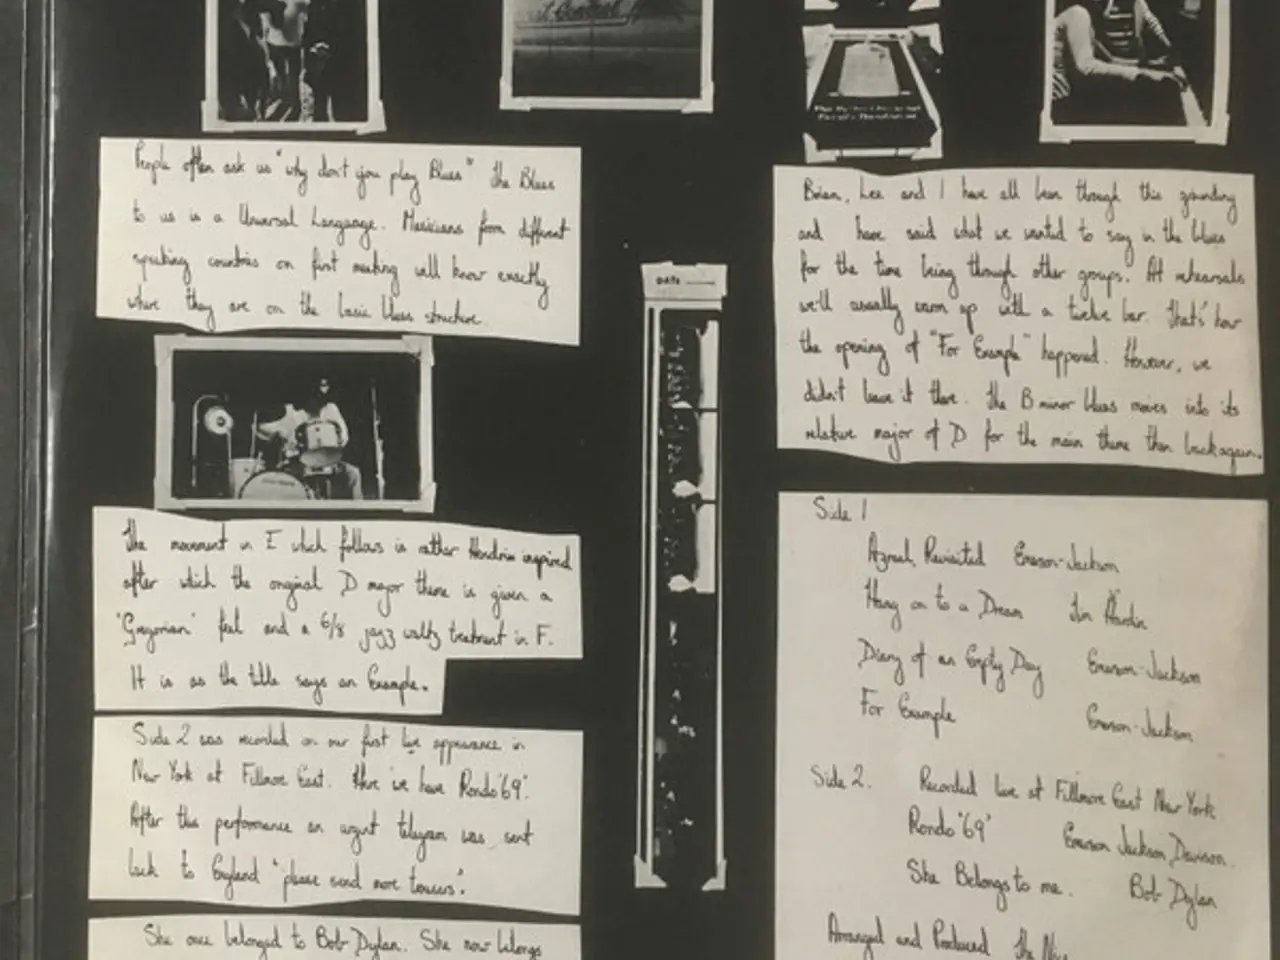 People often ask us "why don't you play Blues" The Blues
to us is a Universal Language. Musicians from different
speaking countries on first meeting will know exactly
where they are on the basic blues structure.
The movement in E which follows is rather Hendrix inspired
after which the original D major theme is given a
'Gregorian' feel and a 6/8 jazz waltz treatment in F.
It is as the title says an Example.
Side 2 was recorded on our first live appearance in
New York at Fillmore East. Here we have Rondo '69'.
After this performance an urgent telegram was sent
back to England "please send more trousers".
She once belonged to Bob Dylan. She now belongs
DATE
Brian, Lee and I have all been through this grounding
and have said what we wanted to say in the blues
for the time being through other groups. At rehearsals
we'll usually warm up with a twelve bar. That's how
the opening of "For Example" happened. However, we
didn't leave it there. The B minor blues moves into its
relative major of D for the main theme then back again.
Side 1
Azrael Revisited Emerson-Jackson
Hang on to a Dream Tim Hardin
Diary of an Empty Day Emerson-Jackson
For Example Emerson-Jackson
Side 2. Recorded live at Fillmore East New York
Rondo '69' Emerson Jackson Davison.
She Belongs to me. Bob Dylan
Arranged and Produced The Nice